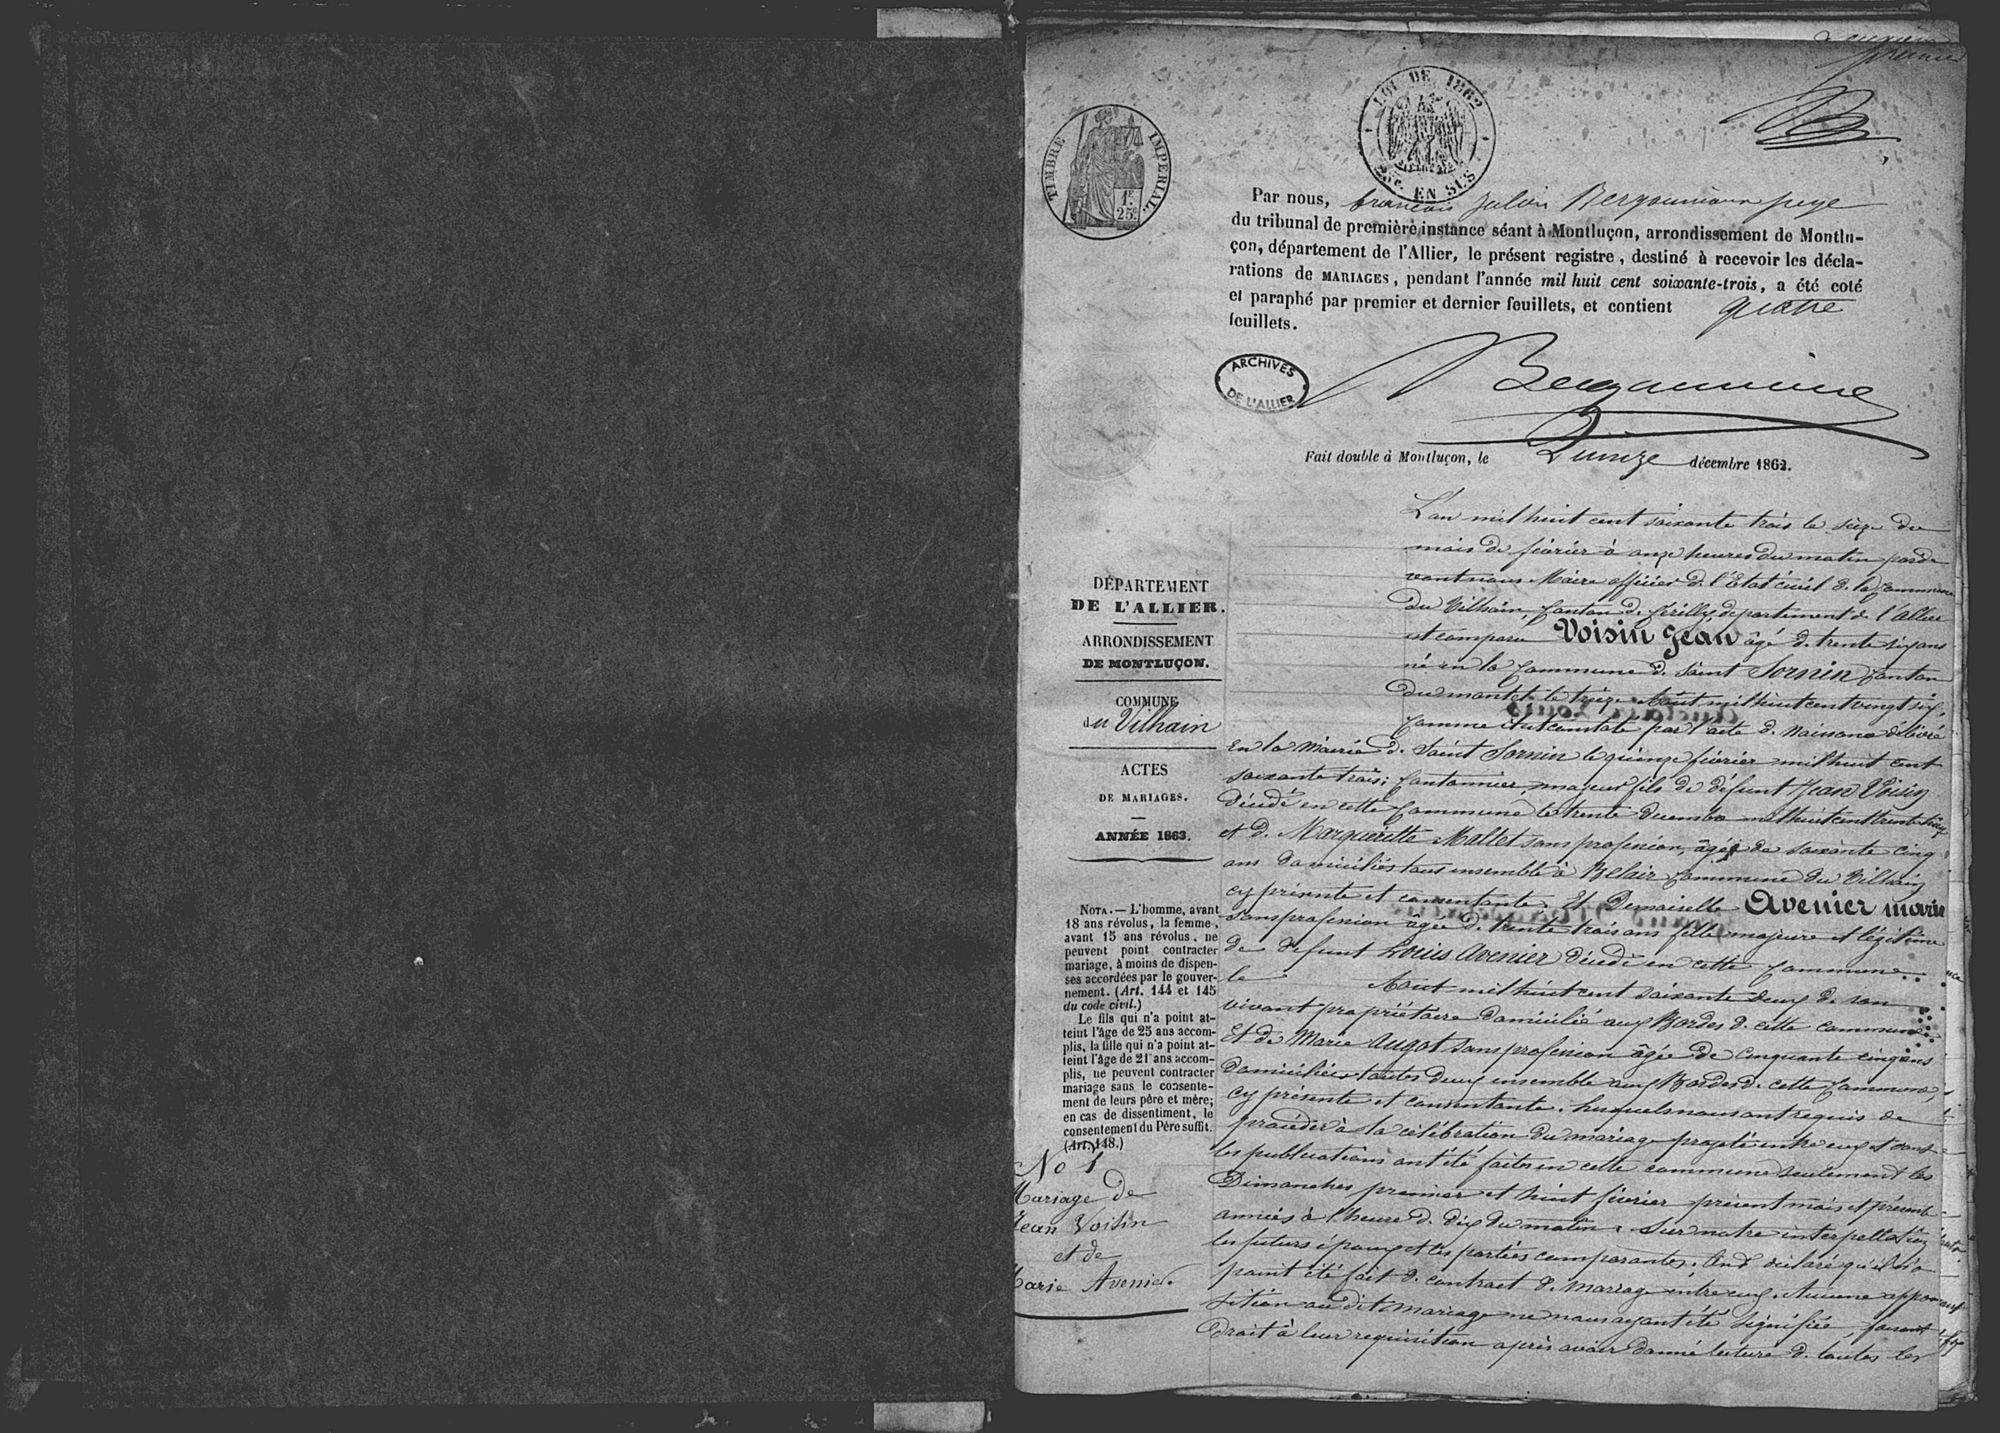 premier
LOI DE 1862
25c. EN SUS
TIMBRE IMPERIAL.
1F.
25c
Par nous, francois Julien Bergounioux juge
du tribunal de première instance séant à Montluçon, arrondissement de Montlu-
çon, département de l'Allier, le présent registre, destiné à recevoir les décla-
rations de MARIAGES, pendant l'année mil huit cent soixante-trois, a été coté
et paraphé par premier et dernier feuillets, et contient quatre
feuillets.
ARCHIVES
DE L'ALLIER
Bergounioux
Fait double à Montluçon, le Quinze décembre 1862.
DÉPARTEMENT
DE L'ALLIER.
ARRONDISSEMENT
DE MONTLUÇON.
COMMUNE
du Vilhain
ACTES
DE MARIAGES.
ANNÉE 1863.
NOTA. — L'homme, avant
18 ans révolus, la femme,
avant 15 ans révolus, ne
peuvent point contracter
mariage, à moins de dispen-
ses accordées par le gouver-
nement. (Art. 144 et 145
du code civil.)
Le fils qui n'a point at-
teint l'âge de 25 ans accom-
plis, la fille qui n'a point at-
teint l'âge de 21 ans accom-
plis, ne peuvent contracter
mariage sans le consente-
ment de leurs père et mère;
en cas de dissentiment, le
consentement du Père suffit.
(Art. 148.)
No 1
Mariage de
Jean Voisin
et de
Marie Avenier.
L'an mil huit cent soixante trois le seize du
mois de février à onze heures du matin parde
vant nous Maire officier de l'Etat civil de la commune
du Vilhain Canton de Cérilly, departement de l'allier
est comparu Voisin Jean âgé de trente six ans
né en la Commune de Saint Sornin Canton
du montet le treize Aout mil huit cent vingt six,
comme il est constaté par l'acte de Naissance délivré
En la Mairie de Saint Sornin le quinze février mil huit cent
soixante trois; Cantonnier, majeur fils de défunt Jean Voisin
décédé en cette Commune le trente Decembre mil huit cent trente
et de Margueritte Mallet sans profession, âgée de soixante cinq
ans domiciliés tous ensemble à Belair Commune du Vilhain
cy présente et consentante. Et Demoiselle Avenier marie
sans profession âgée de trente trois ans fille majeure et légitime
de defunt Louis Avenier décédé en cette Commune
le Aout mil huit cent soixante deux de son
vivant propriétaire domicilié aux Bordes de cette commune
Et de Marie Augot sans profession âgée de cinquante cinq ans
domiciliées toutes deux ensemble aux Bordes de cette Commune
cy présente et consentante. Lesquels nous ont requis de
procéder à la célébration du mariage projeté entre eux et dont
les publications ont été faites en cette commune seulement les
Dimanches premier et huit février présent mois et présente
année à l'heure de dix du matin. Sur notre interpellation
les futurs époux et les parties comparantes. Ont déclaré qu'il n'a
point été fait de contract de Mariage entre eux. Aucune oppo
sition au dit mariage ne nous ayant été signifiée, faisant
droit à leur requisition après avoir donné lecture de toutes les